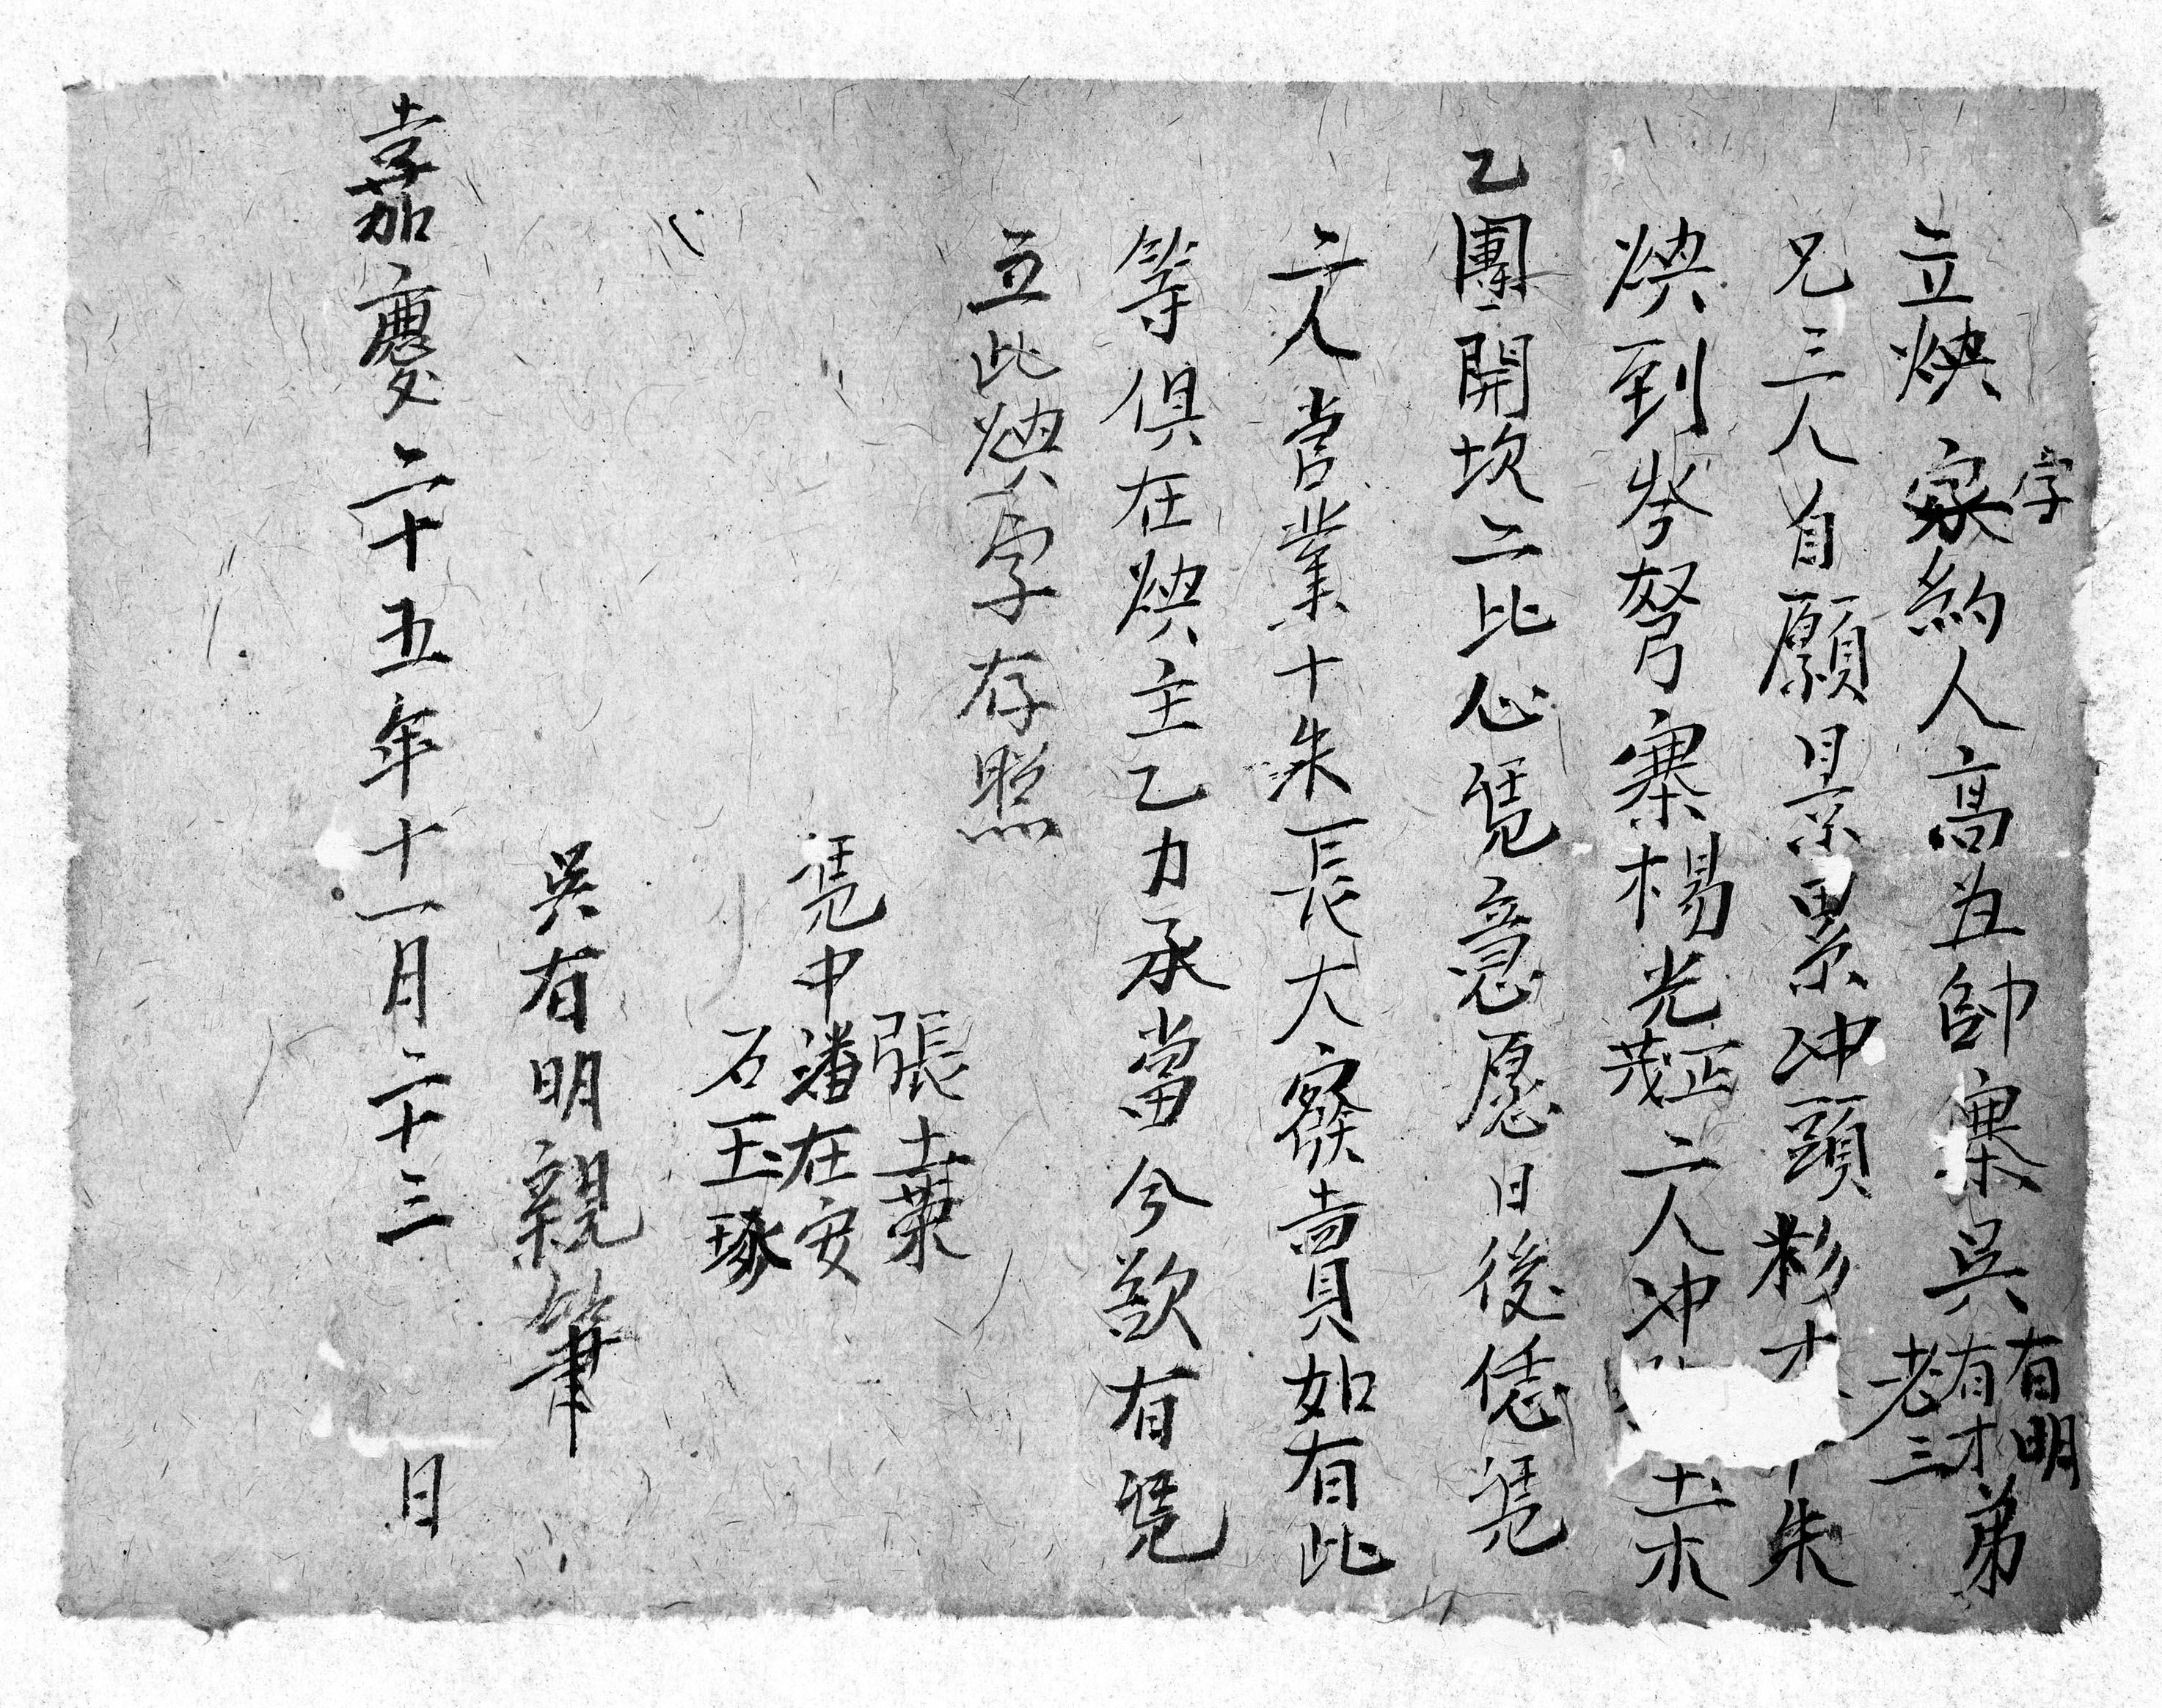 立焿字約人高丑帥寨吳有明有才老三弟
兄三人自願景景冲頭杉木朱
焿到岑努寨楊光茂正二人冲土栗
乙團開坎二比心凴意愿日後恁凴
二人當業十朱長大發賣如有此
等俱在焿主乙力承當今欲有凴
立此焿字存照
凴中張土葉
潘在安
石玉琢
吳有明親筆
嘉慶二十五年十一月二十三日